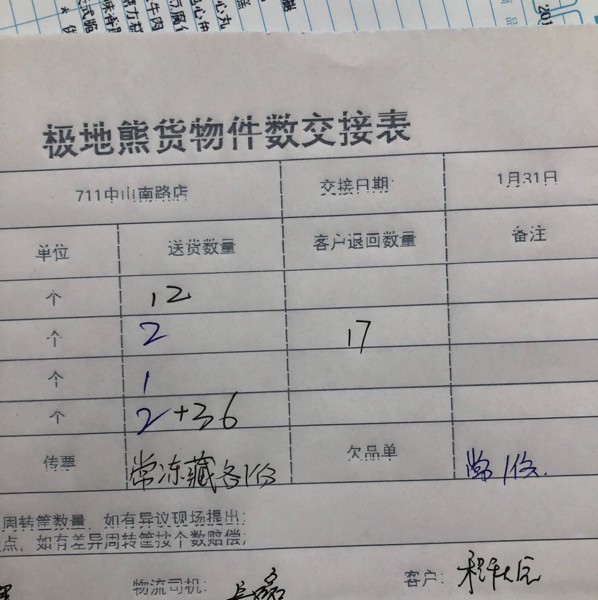 极地熊货物件数交接表
711中山南路店 交接日期: 1月31日
单位 送货数量 客户退回数量 备注
个 12
个 2 17
个 1
个 2+36
传票 常冻藏各1份 欠品单 常1份
周转筐数量,如有异议现场提出;
点,如有差异周转筐按个数赔偿;
物流司机: 客户: